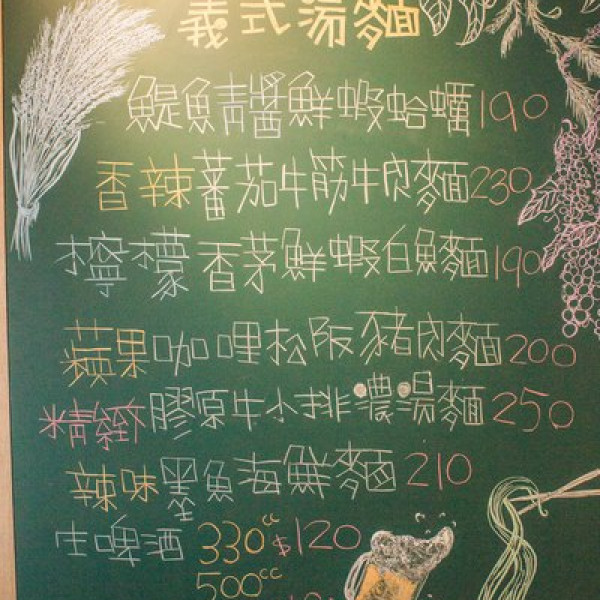 義式湯麵
鯷魚青醬鮮蝦蛤蠣190
香辣蕃茄牛筋牛肉麵230
檸檬香茅鮮蝦白魚麵190
蘋果咖哩松阪豬肉麵200
精緻膠原牛小排濃湯麵250
辣味墨魚海鮮麵210
生啤酒 330cc $120
500cc